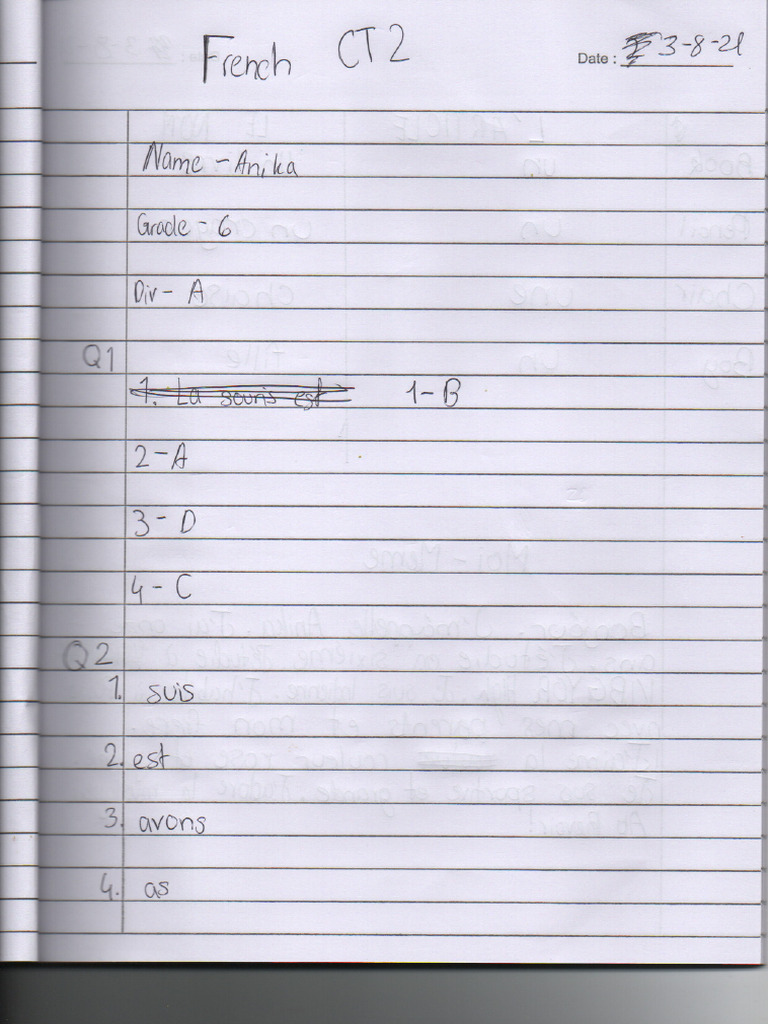 French CT 2
Date : 3-8-21
Name - Anika
Grade - 6
Div - A
Q1
1. La souris est 1 - B
2 - A
3 - D
4 - C
Q2
1. suis
2. est
3. avons
4. as